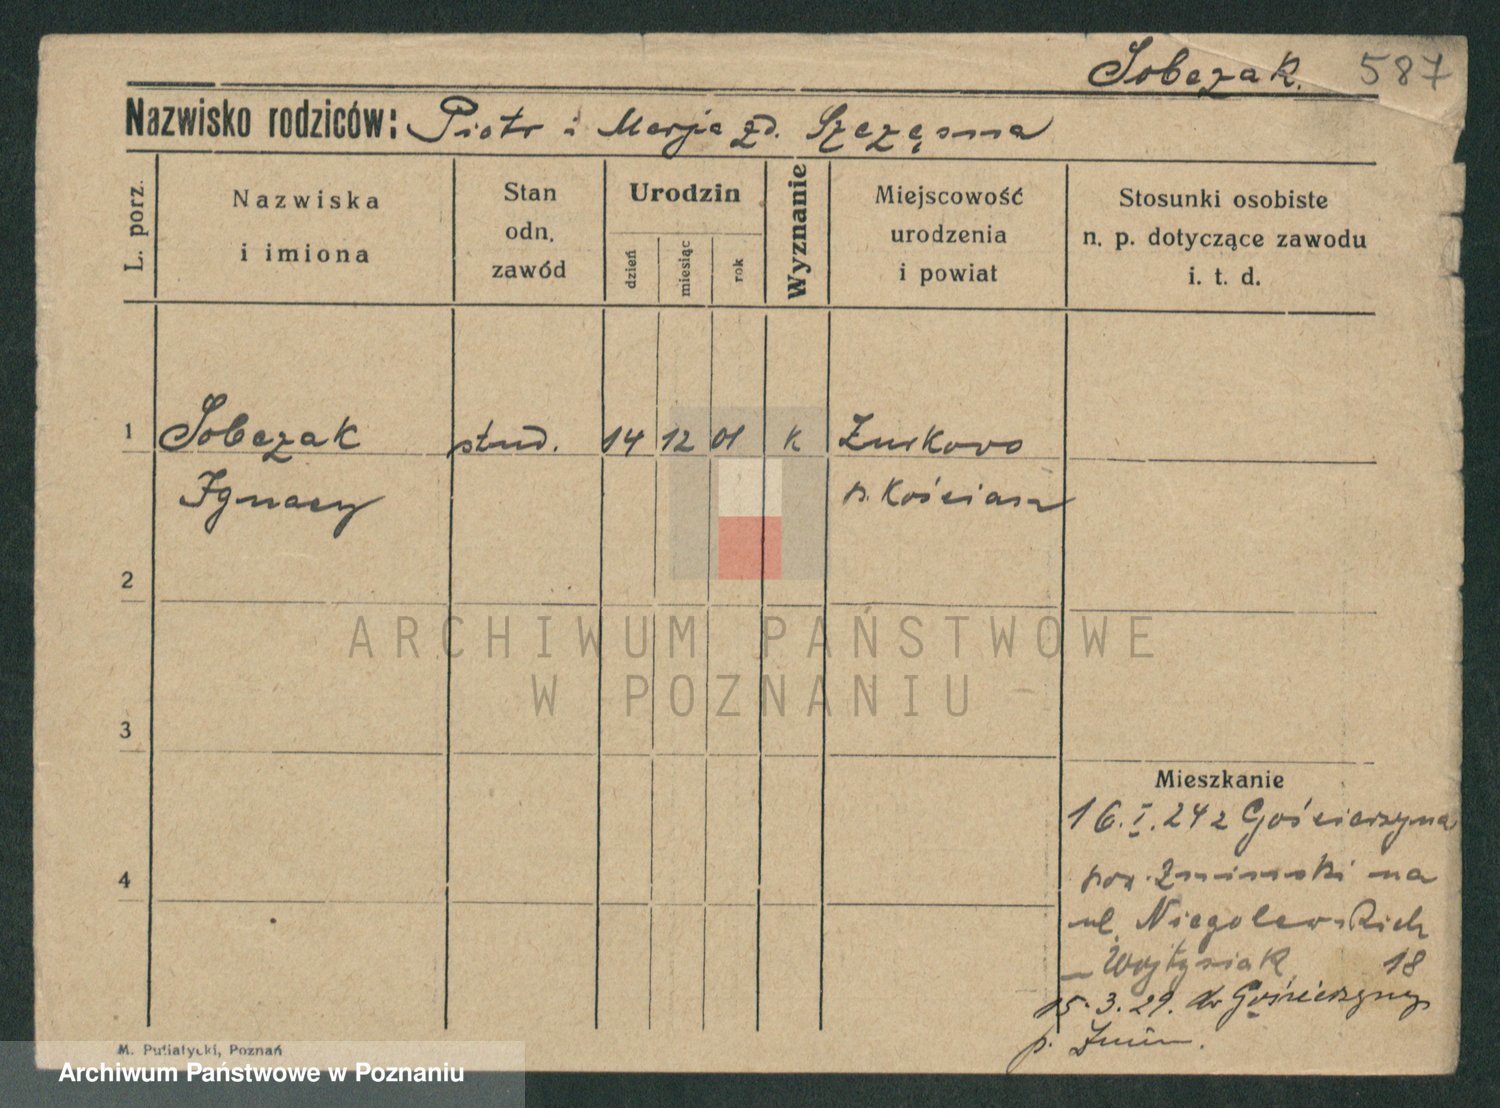 Sobczak. 587
Nazwisko rodziców: Piotr i Marja zd. Szczęsna
L. porz.
Nazwiska
i imiona
Stan
odn.
zawód
Urodzin
dzień
miesiąc
rok
Wyznanie
Miejscowość
urodzenia
i powiat
Stosunki osobiste
n. p. dotyczące zawodu
i. t. d.
1 Sobczak stud. 14 12 01 k Żurkowo
Ignacy p. Kościan
2
ARCHIWUM PAŃSTWOWE
W POZNANIU
3
Mieszkanie
16.I.24 z Gościerzyna
pow. Żniński na
4
ul. Niegolewskich
Wojtysiak 18
15.3.29. do Gościerzyny
p. Żnin.
M. Putiatycki, Poznań
Archiwum Państwowe w Poznaniu